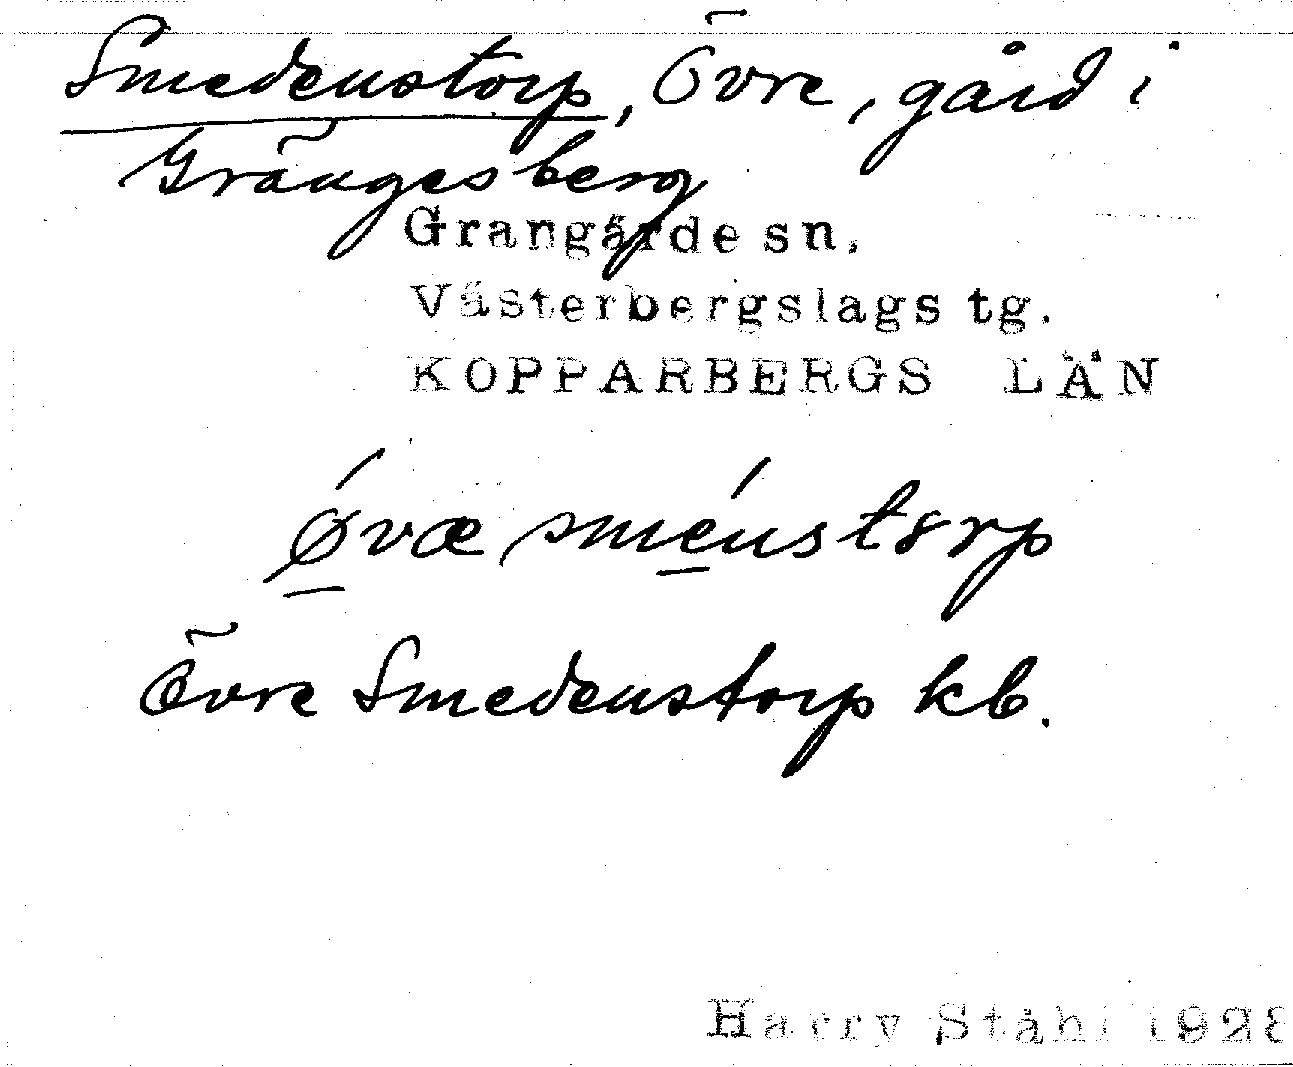 Smedenstorp, Övre, gård i
Grängesberg
Grangärde sn.
Västerbergslags tg.
KOPPARBERGS LÄN
ǿvæ sménstɤrp
Övre Smedenstorp kb.
Harry Ståhl 1928